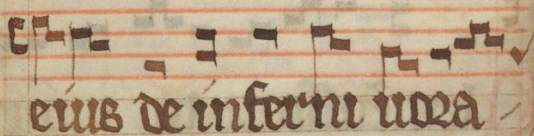 eius de inferni uora